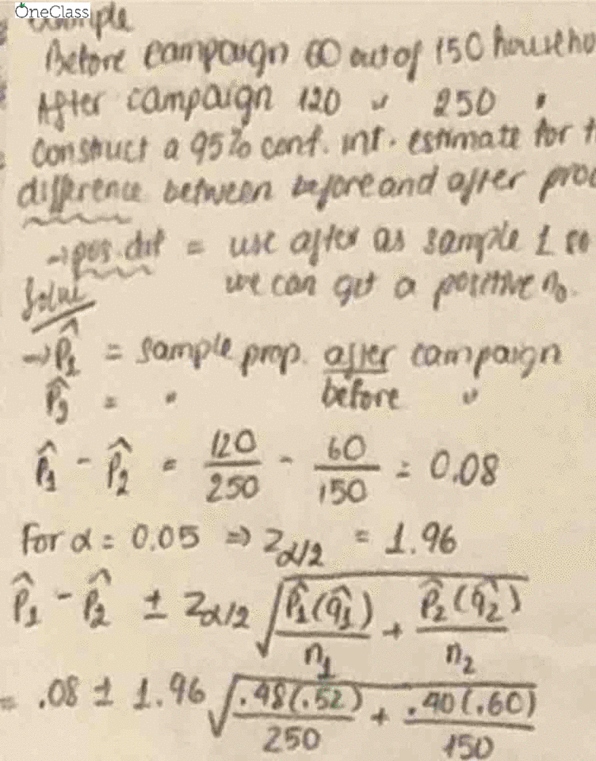 OneClass
Example
Before campaign 60 out of 150 househo
After campaign 120 " 250 "
Construct a 95% conf. int. estimate for t
difference between before and after pro
→ pos. dif = use after as sample 1 so
we can get a positive no.
Solut
→ P̂1 = sample prop. after campaign
P̂2 = " before "
P̂1 - P̂2 = 120/250 - 60/150 = 0.08
For α = 0.05 ⇒ Zα/2 = 1.96
P̂1 - P̂2 ± Zα/2 √(P̂1(q̂1)/n1 + P̂2(q̂2)/n2)
= .08 ± 1.96 √(.48(.52)/250 + .40(.60)/150)